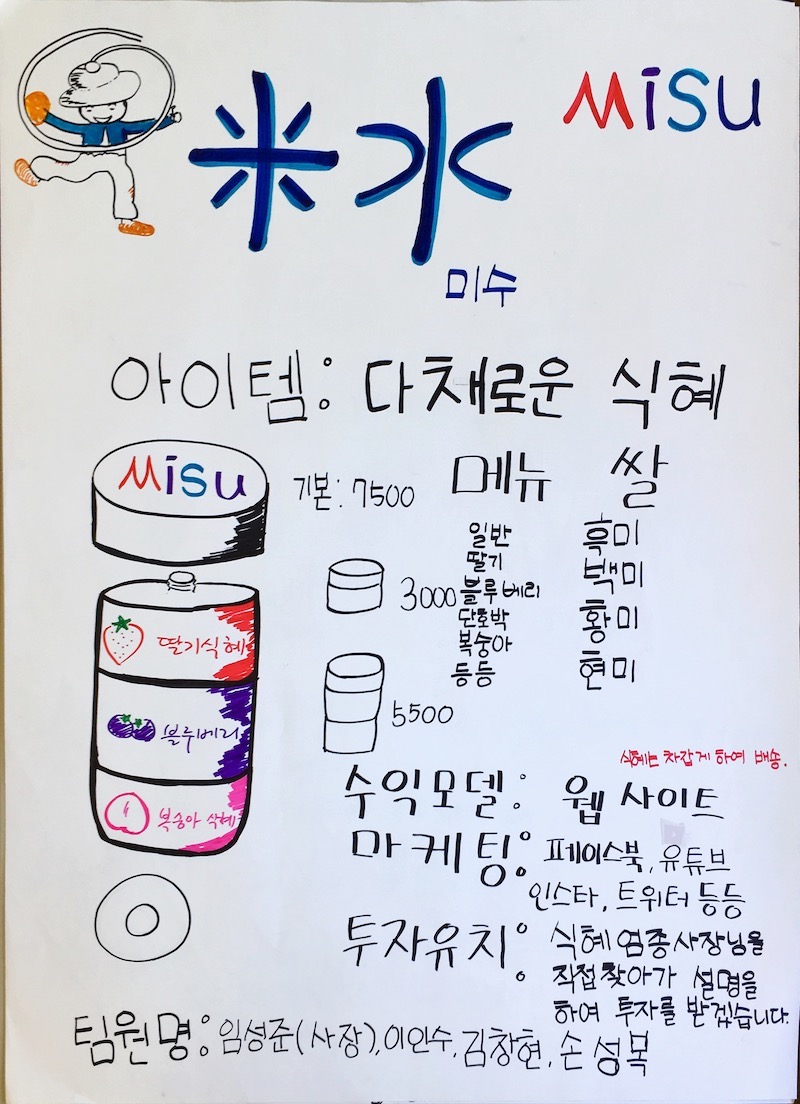 米水
Misu
미수
아이템: 다채로운 식혜
Misu
기본: 7500
메뉴 쌀
일반 흑미
딸기
3000 블루베리 백미
단호박 황미
복숭아
등등 현미
딸기식혜
블루베리
복숭아 식혜
5500
식혜는 차갑게 하여 배송.
수익모델: 웹 사이트
마케팅: 페이스북, 유튜브
인스타, 트위터 등등
투자유치: 식혜 염종사장님을
직접 찾아가 설명을
하여 투자를 받겠습니다.
팀원명: 임성준(사장), 이인수, 김창현, 손성복